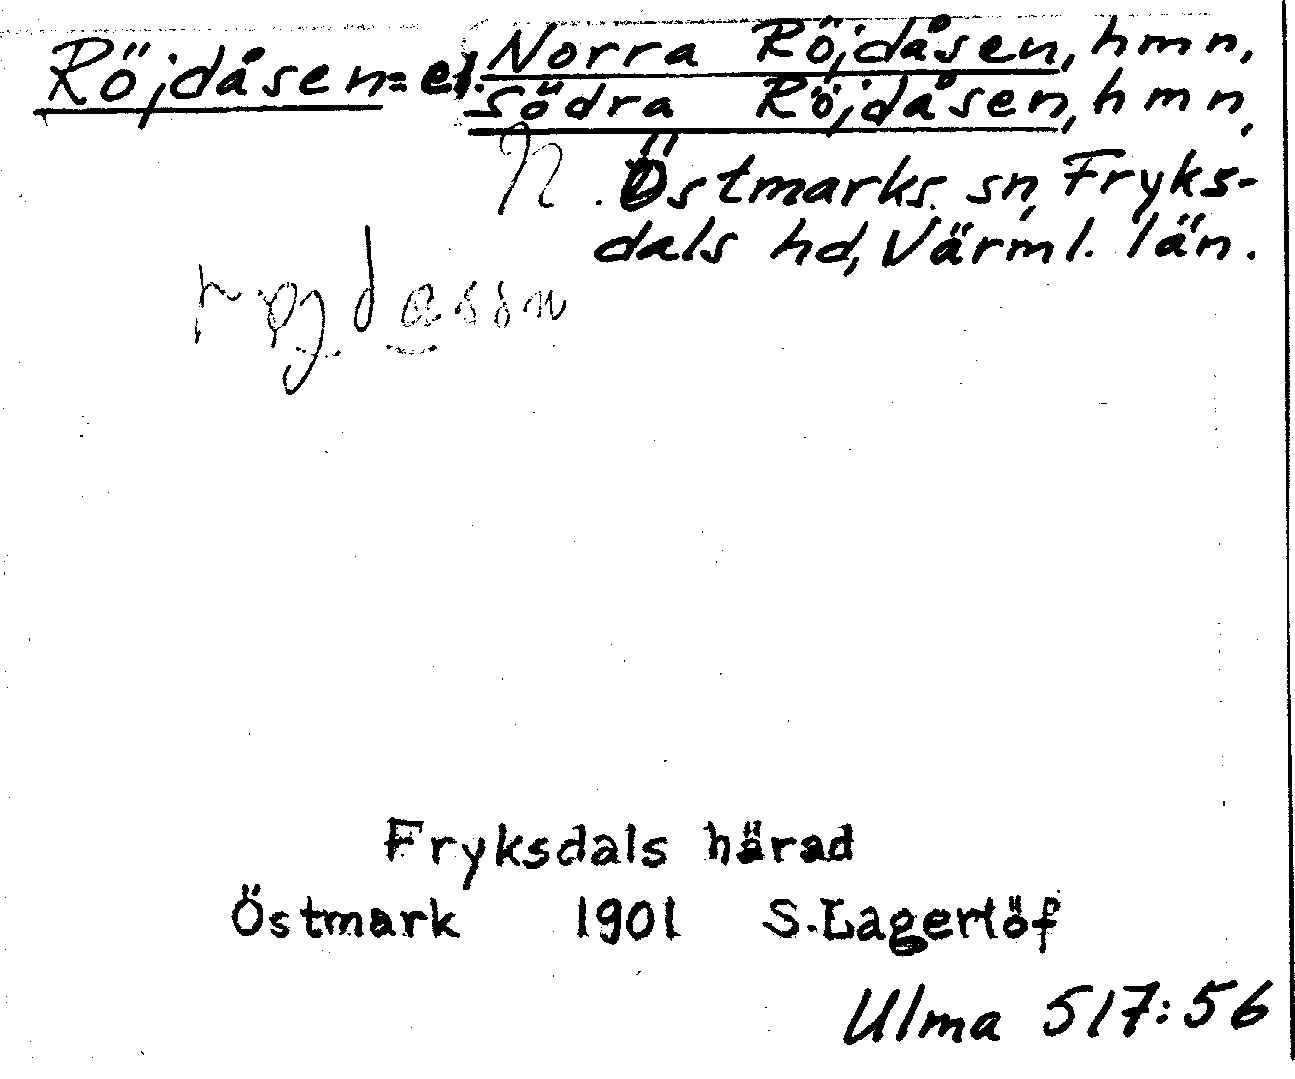 Röjdåsen = el. Norra Röjdåsen, hmn,
Södra Röjdåsen, hmn,
Östmarks sn, Fryks-
dals hd, Värml. län.
Fryksdals härad
Östmark 1901 S. Lagerlöf
Ulma 517:56